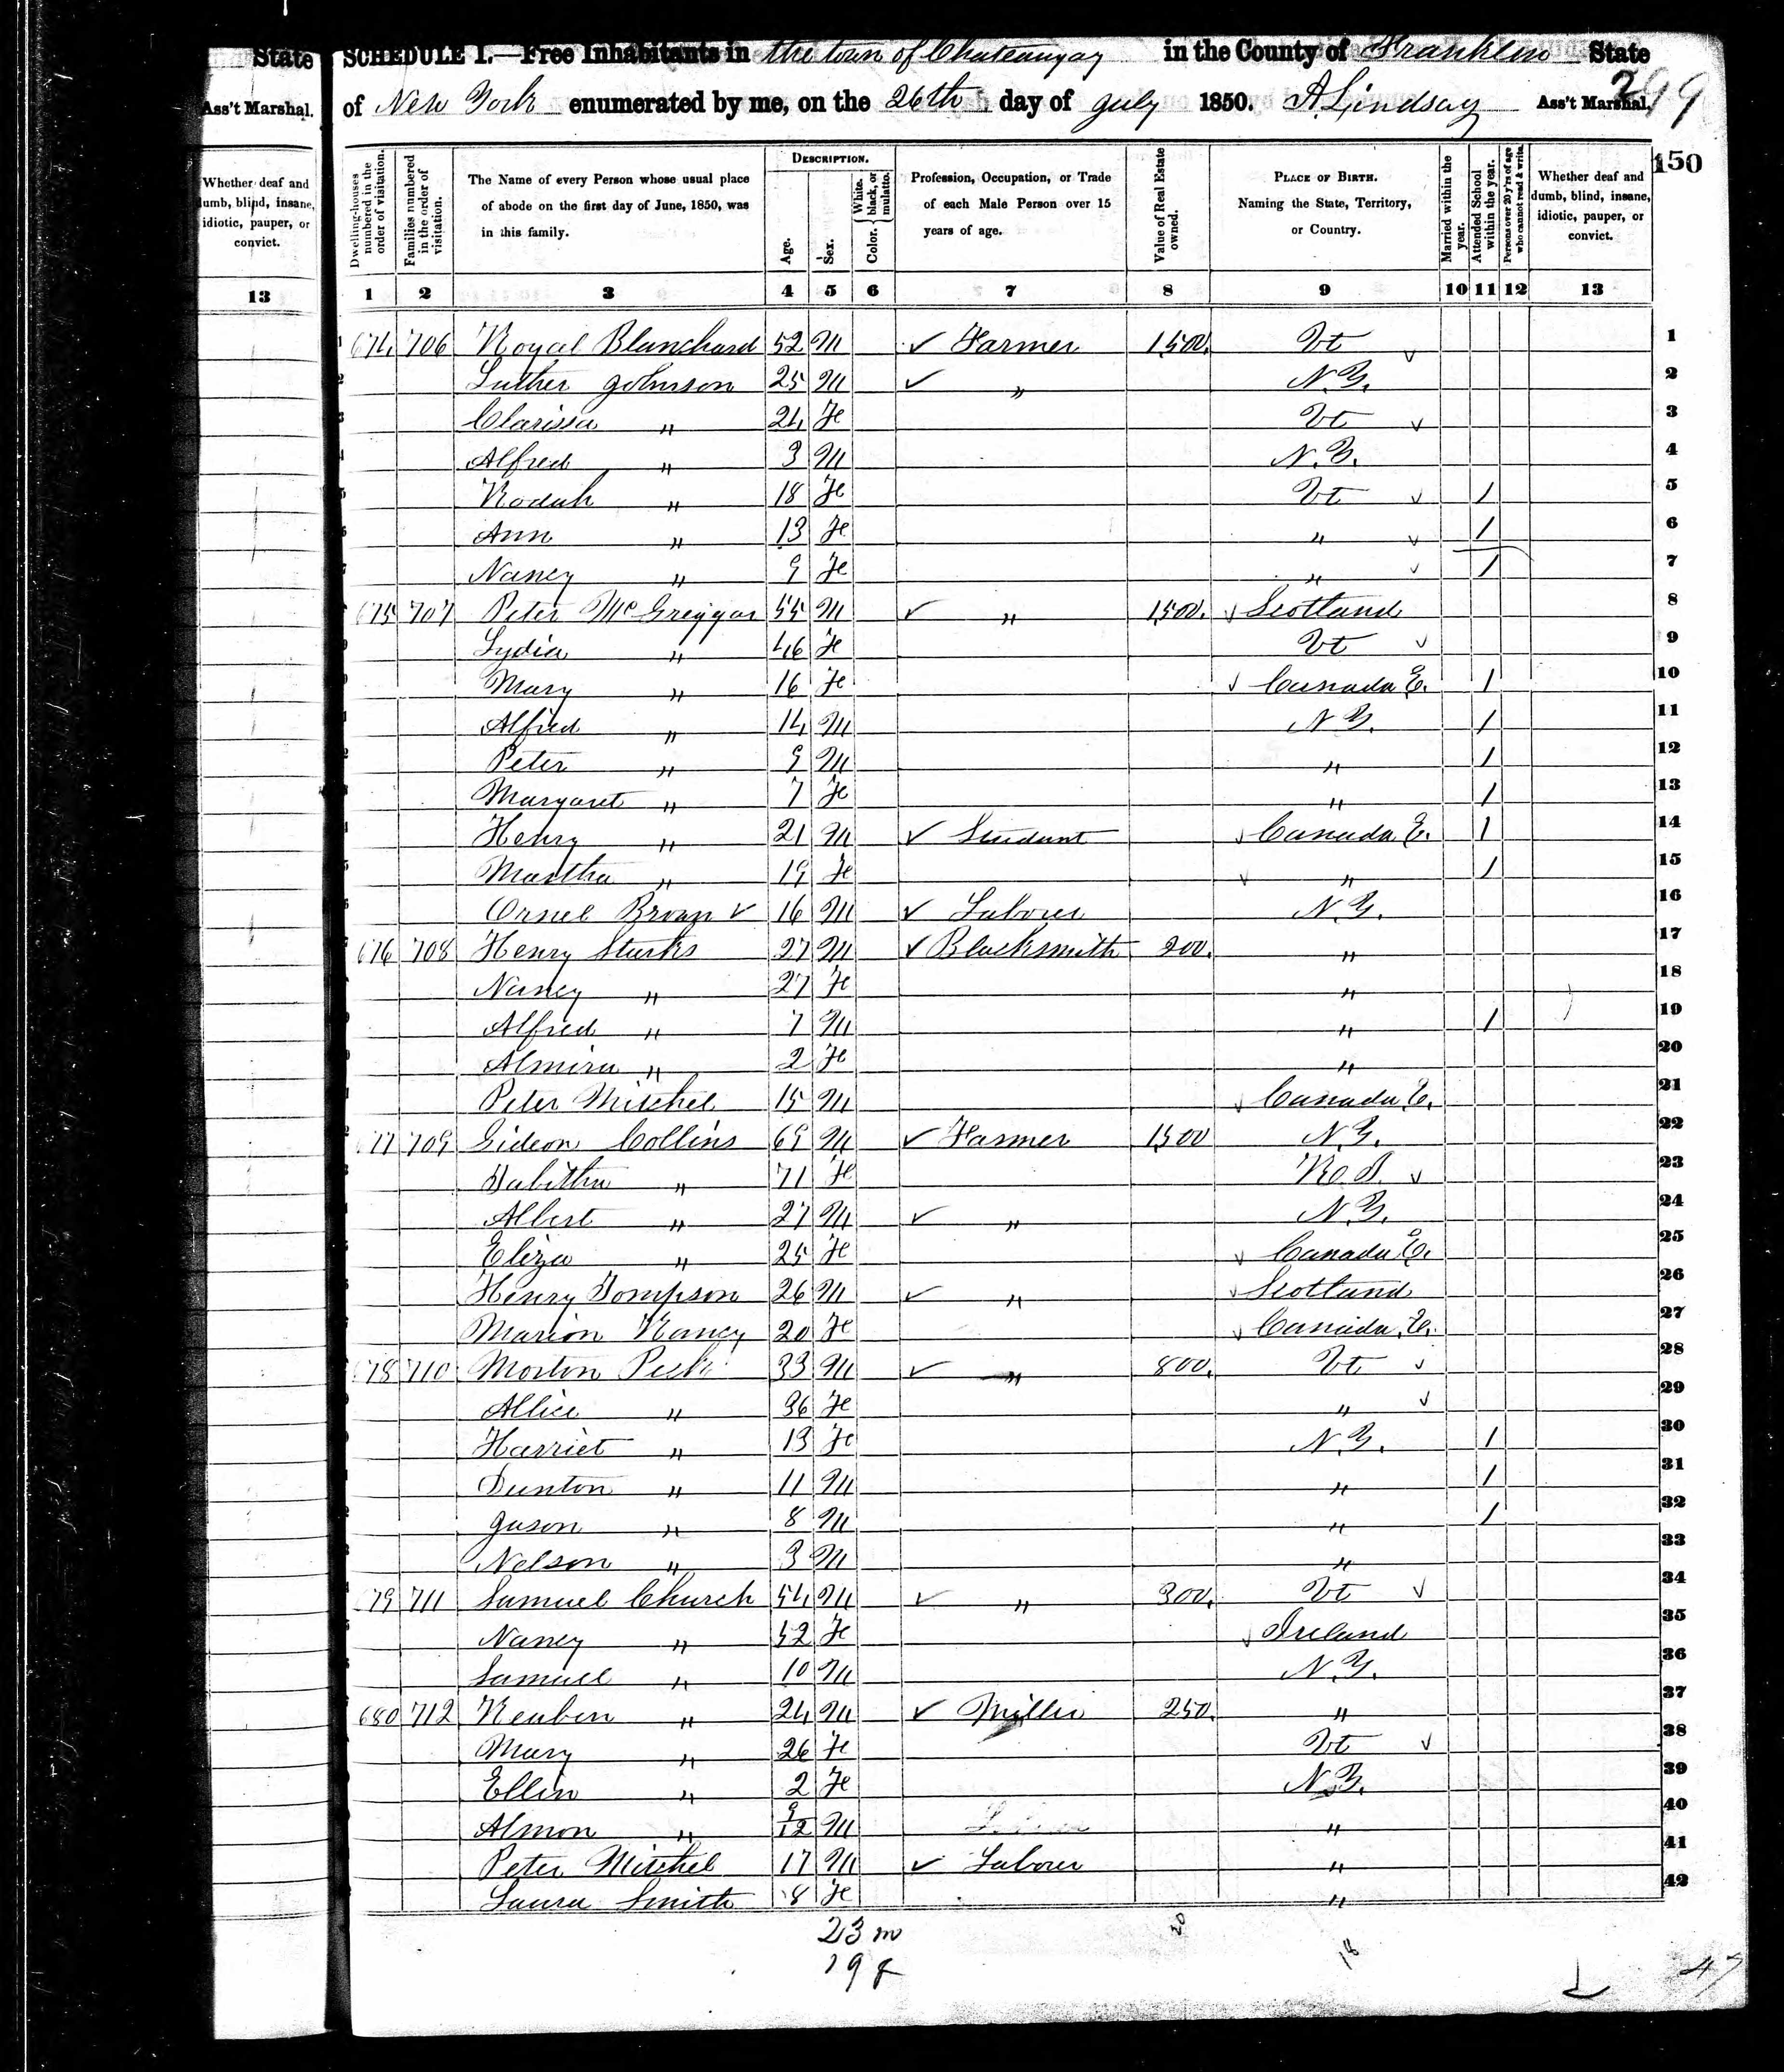 State
Ass't Marshal.
Whether deaf and
dumb, blind, insane,
idiotic, pauper, or
convict.
13
SCHEDULE I.—Free Inhabitants in the town of Chateaugay in the County of Franklin State
of New York enumerated by me, on the 26th day of July 1850. A. Lindsay Ass't Marshal.
299
150
Dwelling-houses numbered in the order of visitation.
Families numbered in the order of visitation.
The Name of every Person whose usual place of abode on the first day of June, 1850, was in this family.
DESCRIPTION.
Age.
Sex.
Color. { White, black, or mulatto.
Profession, Occupation, or Trade of each Male Person over 15 years of age.
Value of Real Estate owned.
PLACE OF BIRTH. Naming the State, Territory, or Country.
Married within the year.
Attended School within the year.
Persons over 20 y'rs of age who cannot read & write.
Whether deaf and dumb, blind, insane, idiotic, pauper, or convict.
1 2 3 4 5 6 7 8 9 10 11 12 13
674 706 Royal Blanchard 52 M ✓ Farmer 1500. Vt ✓ 1
Luther Johnson 25 M ✓ " N.Y. 2
Clarissa " 24 Fe Vt ✓ 3
Alfred " 3 M N.Y. 4
Rodah " 18 Fe Vt ✓ 1 5
Ann " 13 Fe " ✓ 1 6
Nancy " 9 Fe " ✓ 1 7
675 707 Peter McGreggor 55 M ✓ " 1500. ✓ Scotland 8
Lydia " 46 Fe Vt ✓ 9
Mary " 16 Fe ✓ Canada E. 1 10
Alfred " 14 M N.Y. 1 11
Peter " 9 M " 1 12
Margaret " 7 Fe " 1 13
Henry " 21 M ✓ Student ✓ Canada E. 1 14
Martha " 19 Fe ✓ " 1 15
Brown ✓ 16 M ✓ Laborer N.Y. 16
676 708 Henry Sturks 27 M ✓ Blacksmith 200. " 17
Nancy " 27 Fe " 18
Alfred " 7 M " 1 19
Almira " 2 Fe " 20
Peter Mitchel 15 M ✓ Canada E. 21
677 709 Gideon Collins 69 M ✓ Farmer 1500 N.Y. 22
Tabitha " 71 Fe Ro I. ✓ 23
Albert " 27 M ✓ " N.Y. 24
Eliza " 25 Fe ✓ Canada E. 25
Henry Tompson 26 M ✓ " ✓ Scotland 26
Marion Rancy 20 Fe ✓ Canada E. 27
678 710 Morton Peck 33 M ✓ " 800. Vt ✓ 28
Allice " 36 Fe " ✓ 29
Harriet " 13 Fe N.Y. 1 30
Dunton " 11 M " 1 31
Jason " 8 M " 1 32
Nelson " 3 M " 33
679 711 Samuel Church 54 M ✓ " 300. Vt ✓ 34
Nancy " 52 Fe ✓ Ireland 35
Samuel " 10 M N.Y. 36
680 712 Reuben " 24 M ✓ Miller 250. " 37
Mary " 26 Fe Vt ✓ 38
Ellin " 2 Fe N.Y. 39
Almon " 9/12 M " 40
Peter Mitchel 17 M ✓ Laborer " 41
Laura Smith 8 Fe " 42
23 m
19 f
20
18
47